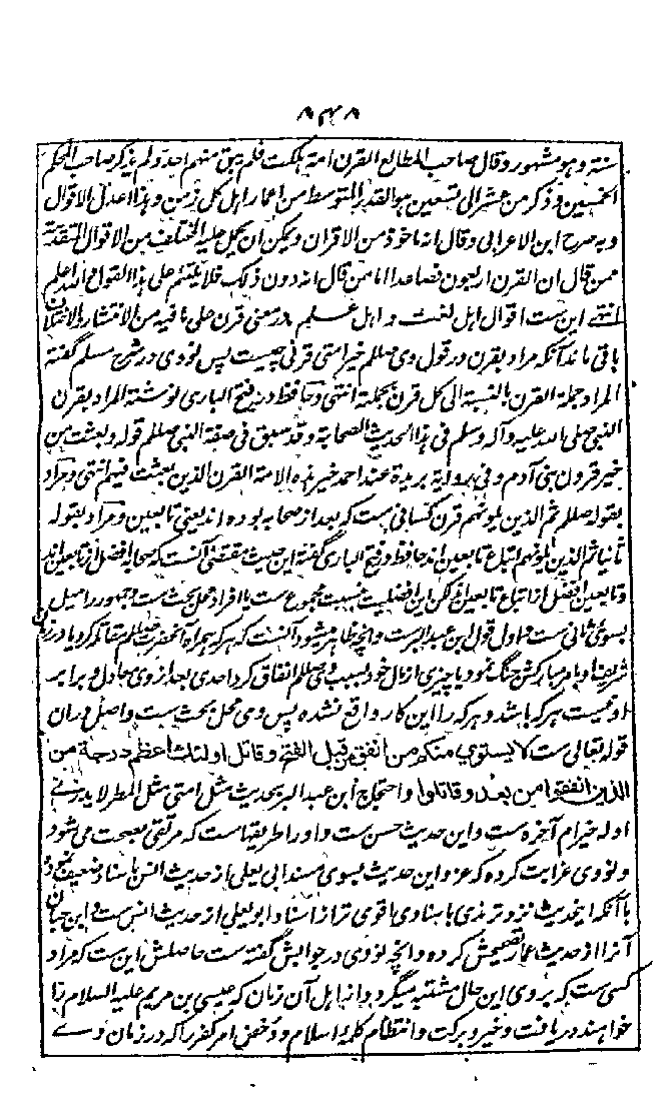 ۸۴۸
سنة وهو مشهور وقال صاحب المطالع القرن امة هلكت فلم يبق منهم احد ولم يذكر صاحب المحكم
الخمسين وذكر من عشر الى تسعين هو القدر المتوسط من اعمار اهل كل زمن وهذا اعدل الاقوال
وبه صرح ابن الاعرابى وقال انه ماخوذ من الاقران ويمكن ان يحمل عليه المختلف من الاقوال المتقدمة
ممن قال ان القرن اربعون فصاعدا اما من قال انه دون ذلك فلا يلتئم على هذا القول والله اعلم
انتهى اين ست اقوال اهل لغت و اهل علم در معنى قرن على ما فيه من الانتشار والاختلاف
باقى ماند آنكه مراد بقرن در قول وى صللم خير امتى قرنى چيست پس نووى در شرح مسلم گفته
المراد جملة القرن بالنسبة الى كل قرن بجملة انتهى وحافظ در فتح البارى نوشته المراد بقرن
النبى صلى الله عليه وآله وسلم فى هذا الحديث الصحابة وقد سبق فى صفة النبى صللم قوله وبعثت من
خير قرون بنى آدم وفى رواية بريدة عند احمد خير هذه الامة القرن الذين بعثت فيهم انتهى ومراد
بقوله صللم ثم الذين يلونهم قرن كسانى ست كه بعد از صحابه بوده اند يعنى تابعين ومراد بقوله
ثانيا ثم الذين يلونهم اتباع تابعين اند حافظ در فتح البارى گفته اين حديث مقتضى آنست كه صحابه افضل از تابعين اند
وتابعين افضل از اتباع تابعين ليكن اين افضليت بنسبت مجموع ست يا افراد محل بحث ست وجمهور را ميل
بسوى ثانى ست و اول قول ابن عبد البرست وانچه ظاهر ميشود آنست كه هركه همراه آنحضرت صللم مقاتله كرد يا در زمان
شريف او با مر مباركش جنگ نمود يا چيزى از مال خود بسبب وى صللم انفاق كرد احدى بعد از وى معادل و برابر
او نيست هركه باشد و هركه را اين كار واقع نشده پس وى محل بحث ست واصل دران
قوله تعالى ست لا يستوي منكم من انفق من قبل الفتح وقاتل اولئك اعظم درجة من
الذين انفقوا من بعد وقاتلوا واحتجاج ابن عبد البر بحديث مثل امتى مثل المطر لا يدرى
اوله خير ام آخره ست واين حديث حسن ست و او را طريقهاست كه مرتقى بصحت مى شود
و نووى غرابت كرده كه عزو اين حديث بسوى مسند ابى يعلى از حديث انس باسناد ضعيف نموده
با آنكه اينحديث نزد ترمذى باسنادى اقوى تر از اسناد ابو يعلى از حديث انس ست و ابن حبان
آنرا از حديث عمار تصحيحش كرده وانچه نووى در جوابش گفته ست حاصلش اين ست كه مراد
كسى ست كه بروى اين حال مشتبه ميگردد از اهل آن زمان كه عيسى بن مريم عليه السلام را
خواهند دريافت و خير و بركت و انتظام كلمۀ اسلام و دحض امر كفر را كه در زمان وے